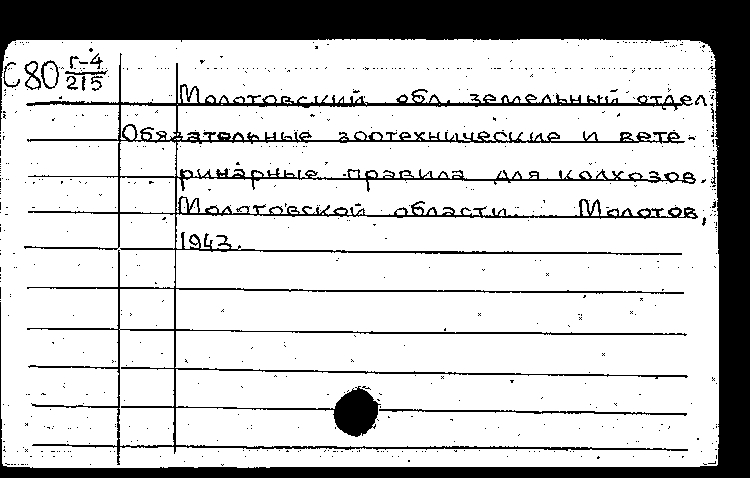 С80 Г-4/215
Молотовский обл. земельный отдел
Обязательные зоотехнические и вете-
ринарные правила для колхозов.
Молотовской области. Молотов,
1943.